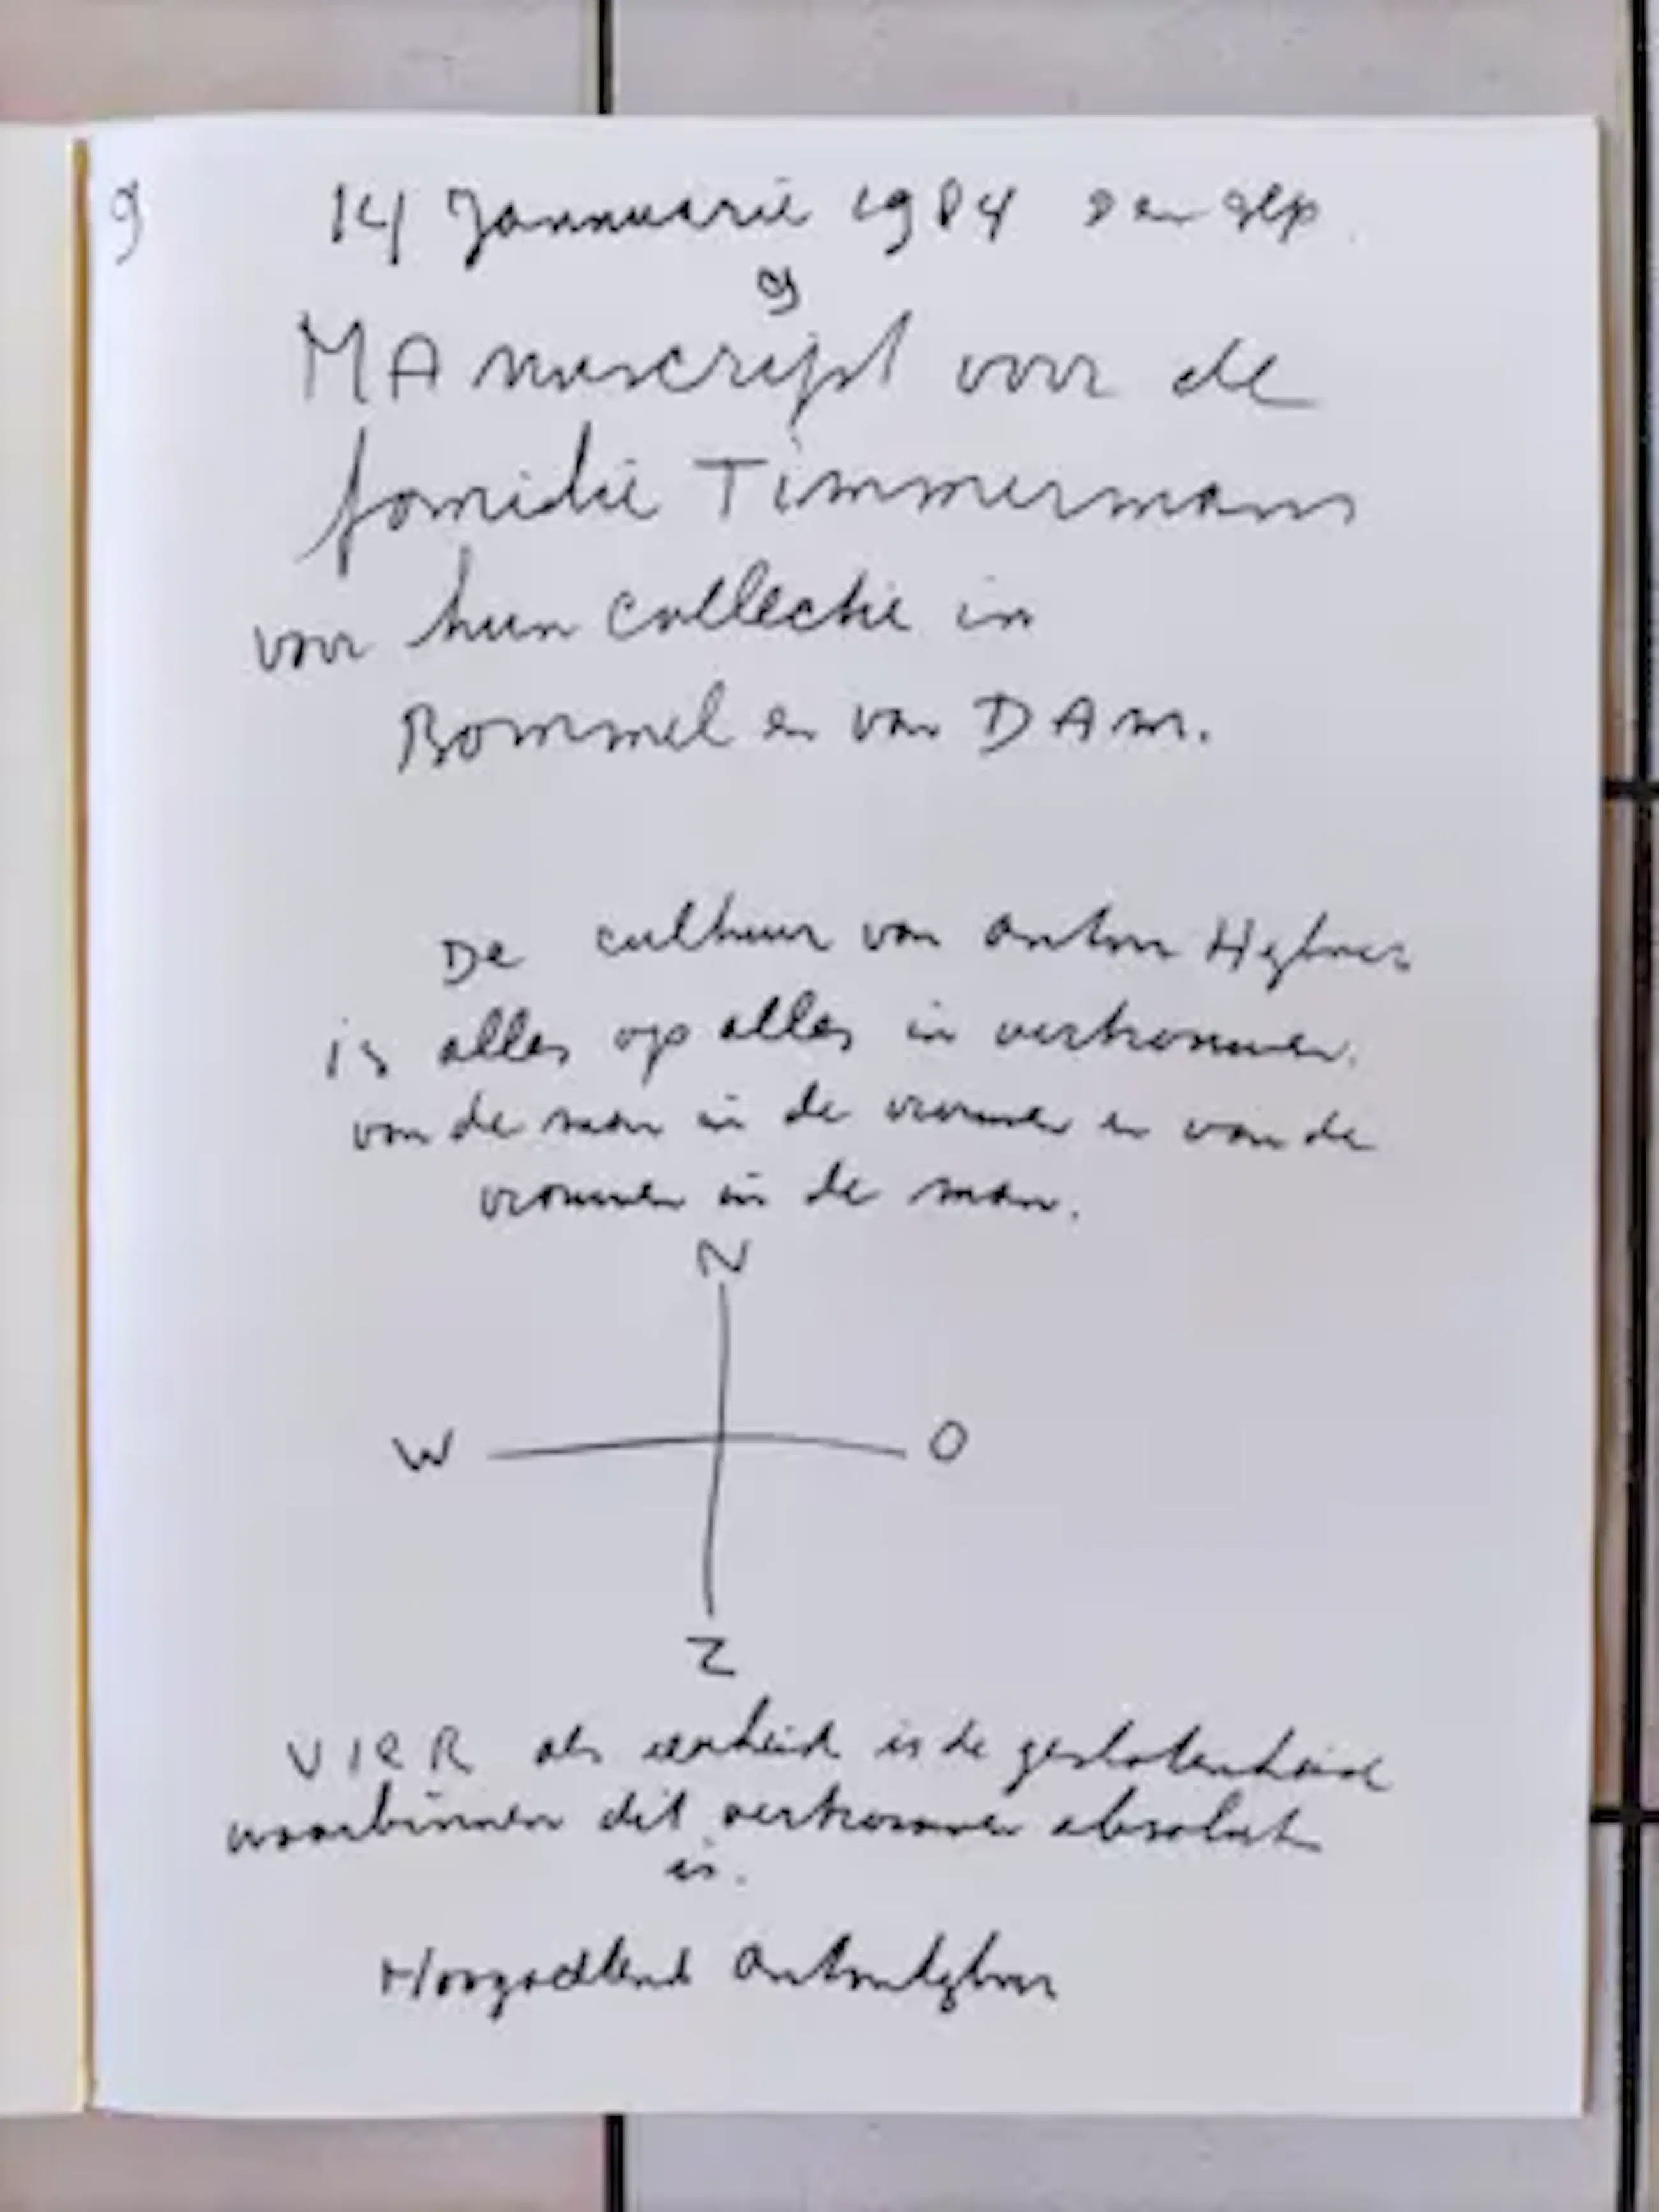 9 14 Jannuarie 1984 Den Ilp.
9
MAnuscript voor de
familie Timmermans
voor hun collectie in
Bommel en van DAm.
De cultuur van Anton Heyboer
is alles op alles in vertrouwen.
van de man in de vrouwen en van de
vrouwen in de man.
N
W O
Z
VIER als eenheid is de geslotenheid
waarbinnen dit vertrouwen absoluut
is.
Hoogachtend Anton Heyboer